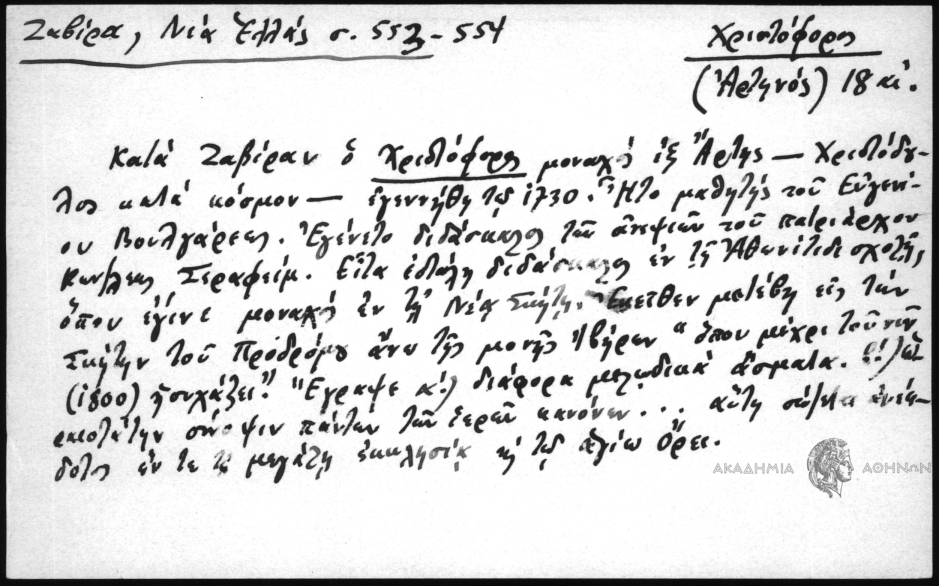 Ζαβίρα, Νέα Ἑλλάς σ. 553-554
Χριστόφορος
(Ἀρτηνός) 18 αἰ.
Κατά Ζαβίραν ὁ Χριστόφορος μοναχός ἐξ Ἄρτης — Χριστόδου-
λος κατά κόσμον — ἐγεννήθη τῷ 1730. Ἦτο μαθητής τοῦ Εὐγενί-
ου Βουλγάρεως. Ἐγένετο διδάσκαλος τῶν ἀνεψιῶν τοῦ πατριάρχου
Κων/λεως Σεραφείμ. Εἶτα ἐστάλη διδάσκαλος ἐν τῇ Ἀθωνίτιδι σχολῇ
ὅπου ἔγινε μοναχός ἐν τῇ Νέᾳ Σκήτῃ. Ἐκεῖθεν μετέβη εἰς τήν
Σκήτην τοῦ Προδρόμου ἄνω τῆς μονῆς Ἰβήρων "ὅπου μέχρι τοῦ νῦν
(1800) ἡσυχάζει". "Ἔγραψε κ) διάφορα μελῳδικά ᾄσματα.
σύνοψιν πάντων τῶν ἱερῶν κανόνων... αὕτη σώζεται ἀνέκ-
δοτος ἐν τε τῇ μεγάλῃ ἐκκλησίᾳ κ) τῷ ἁγίῳ Ὄρει.
ΑΚΑΔΗΜΙΑ ΑΘΗΝΩΝ